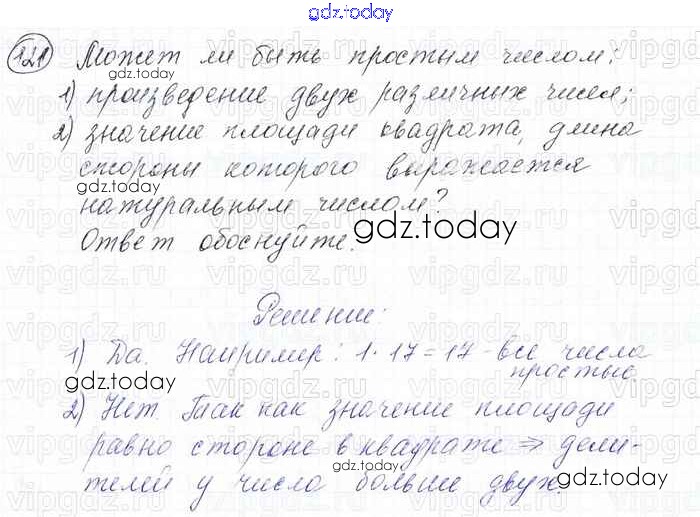 gdz.today
121 Может ли быть простым числом:
gdz.today
1) произведение двух различных чисел;
2) значение площади квадрата, длина
gdz.today
стороны которого выражается
gdz.today
натуральным числом?
Ответ обоснуйте.
gdz.today
Решение:
1) Да. Например: 1·17=17 - все числа
простые.
gdz.today
gdz.today
2) Нет. Так как значение площади
gdz.today
равно стороне в квадрате ⇒ дели-
gdz.today
телей у числа больше двух.
gdz.today